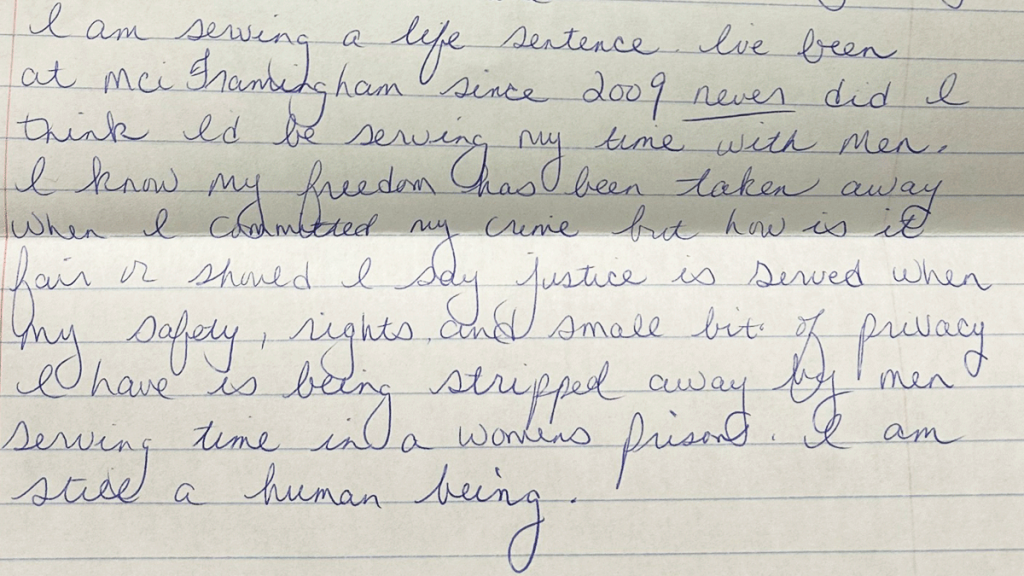 I am serving a life sentence. Ive been
at mci Framingham since 2009 never did I
think Id be serving my time with men.
I know my freedom has been taken away
when I committed my crime but how is it
fair or should I say justice is served when
my safety, rights, and small bit of privacy
I have is being stripped away by men
serving time in a womens prison. I am
still a human being.